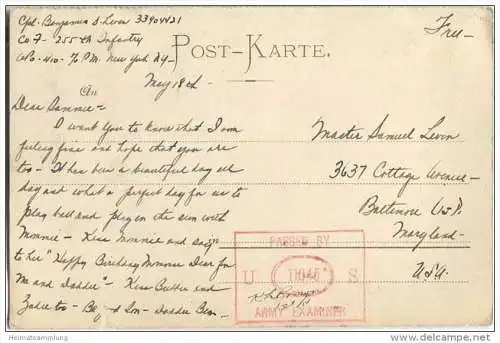 Cpl. Benjamin S. Levin 33904421
Co F - 255th Infantry
APO - 410 - % P.M. New York N.Y.
Free -
POST-KARTE.
May 18th
Dear Sammie -
I want you to know that I am
feeling fine and hope that you are
too - It has been a beautiful day all
day and what a perfect day for us to
play ball and play in the sun with
Mommie - Kiss Mommie and say
to her "Happy Birthday Mommie Dear for
Me and Daddie" - Kiss Bubbie and
Zadie too - Be, a Son - Daddie Ben -
Master Samuel Levin
3637 Cottage Avenue -
Baltimore
Maryland -
USA.
PASSED BY
U S
ARMY EXAMINER
Heimatsammlung
www.delcampe.net